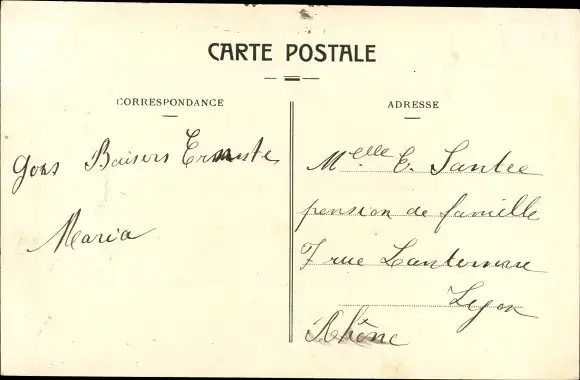 CARTE POSTALE
CORRESPONDANCE
gors Baisers Erneste
Maria
ADRESSE
Melle E. Santee
pension de famille
7 rue Lanterne
Lyon
Rhône